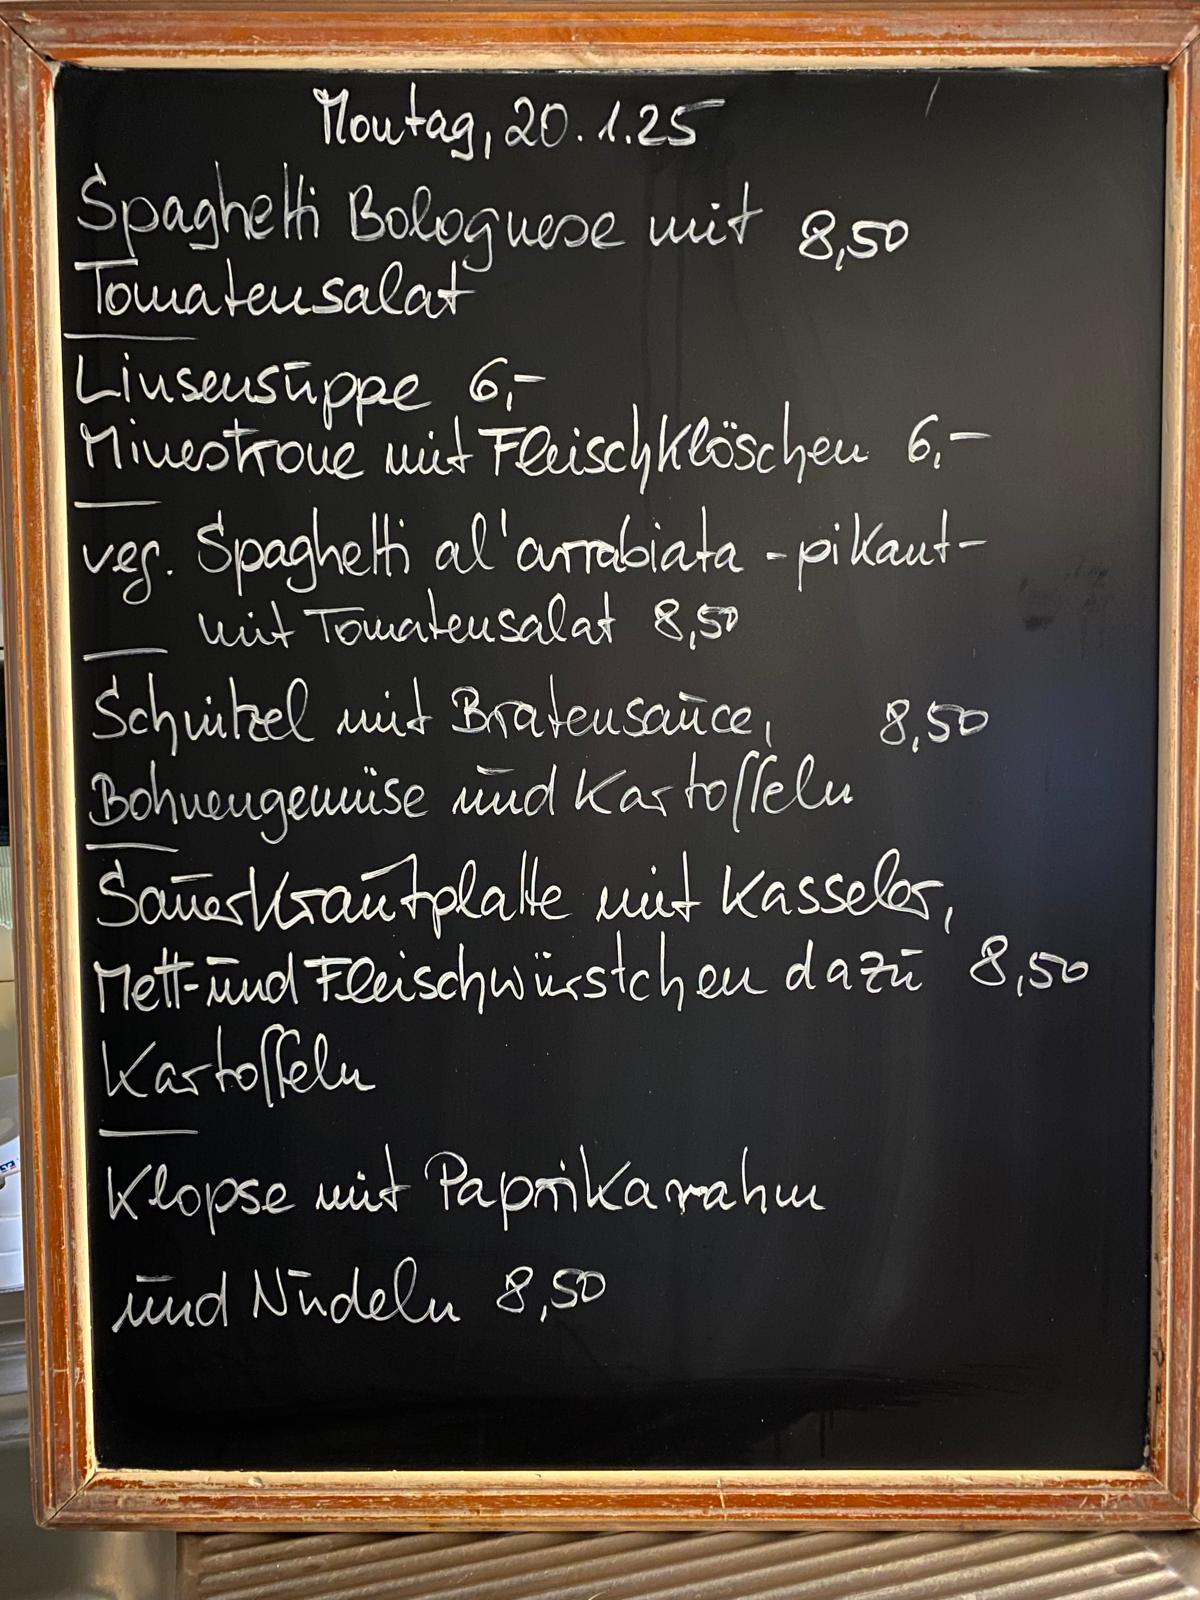 Montag, 20.1.25
Spaghetti Bolognese mit 8,50
Tomatensalat
Linsensuppe 6,-
Minestrone mit Fleischklöschen 6,-
veg. Spaghetti al'arrabiata - pikant -
mit Tomatensalat 8,50
Schnitzel mit Bratensauce, 8,50
Bohnengemüse und Kartoffeln
Sauerkrautplatte mit Kasseler,
Mett- und Fleischwürstchen dazu 8,50
Kartoffeln
Klopse mit Paprikarahm
und Nudeln 8,50